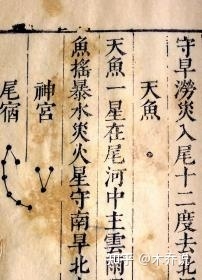 守旱澇災入尾十二度去北
天魚
天魚一星在尾河中主雲雨
魚搖暴水災火星守南旱北
神宮
尾宿
知乎 @木乔迟